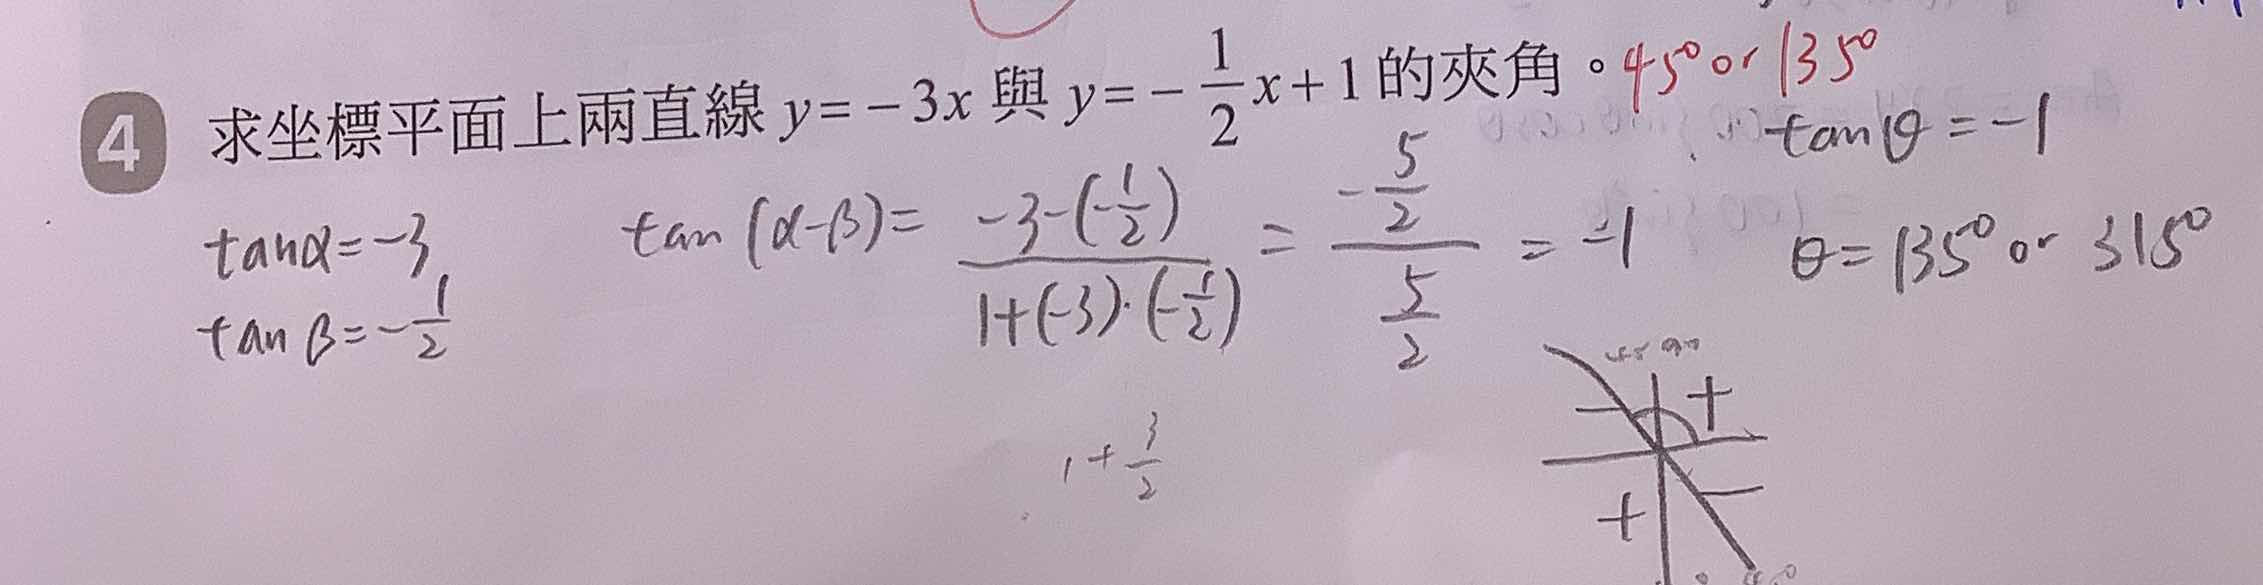 4 求坐標平面上兩直線 y=-3x 與 y=-1/2x+1 的夾角。45° or 135°
tanθ=-1
tanα=-3 tan(α-β)= (-3-(-1/2))/(1+(-3)·(-1/2)) = (-5/2)/(5/2) = -1 θ=135° or 315°
tanβ=-1/2
1+3/2
+
+